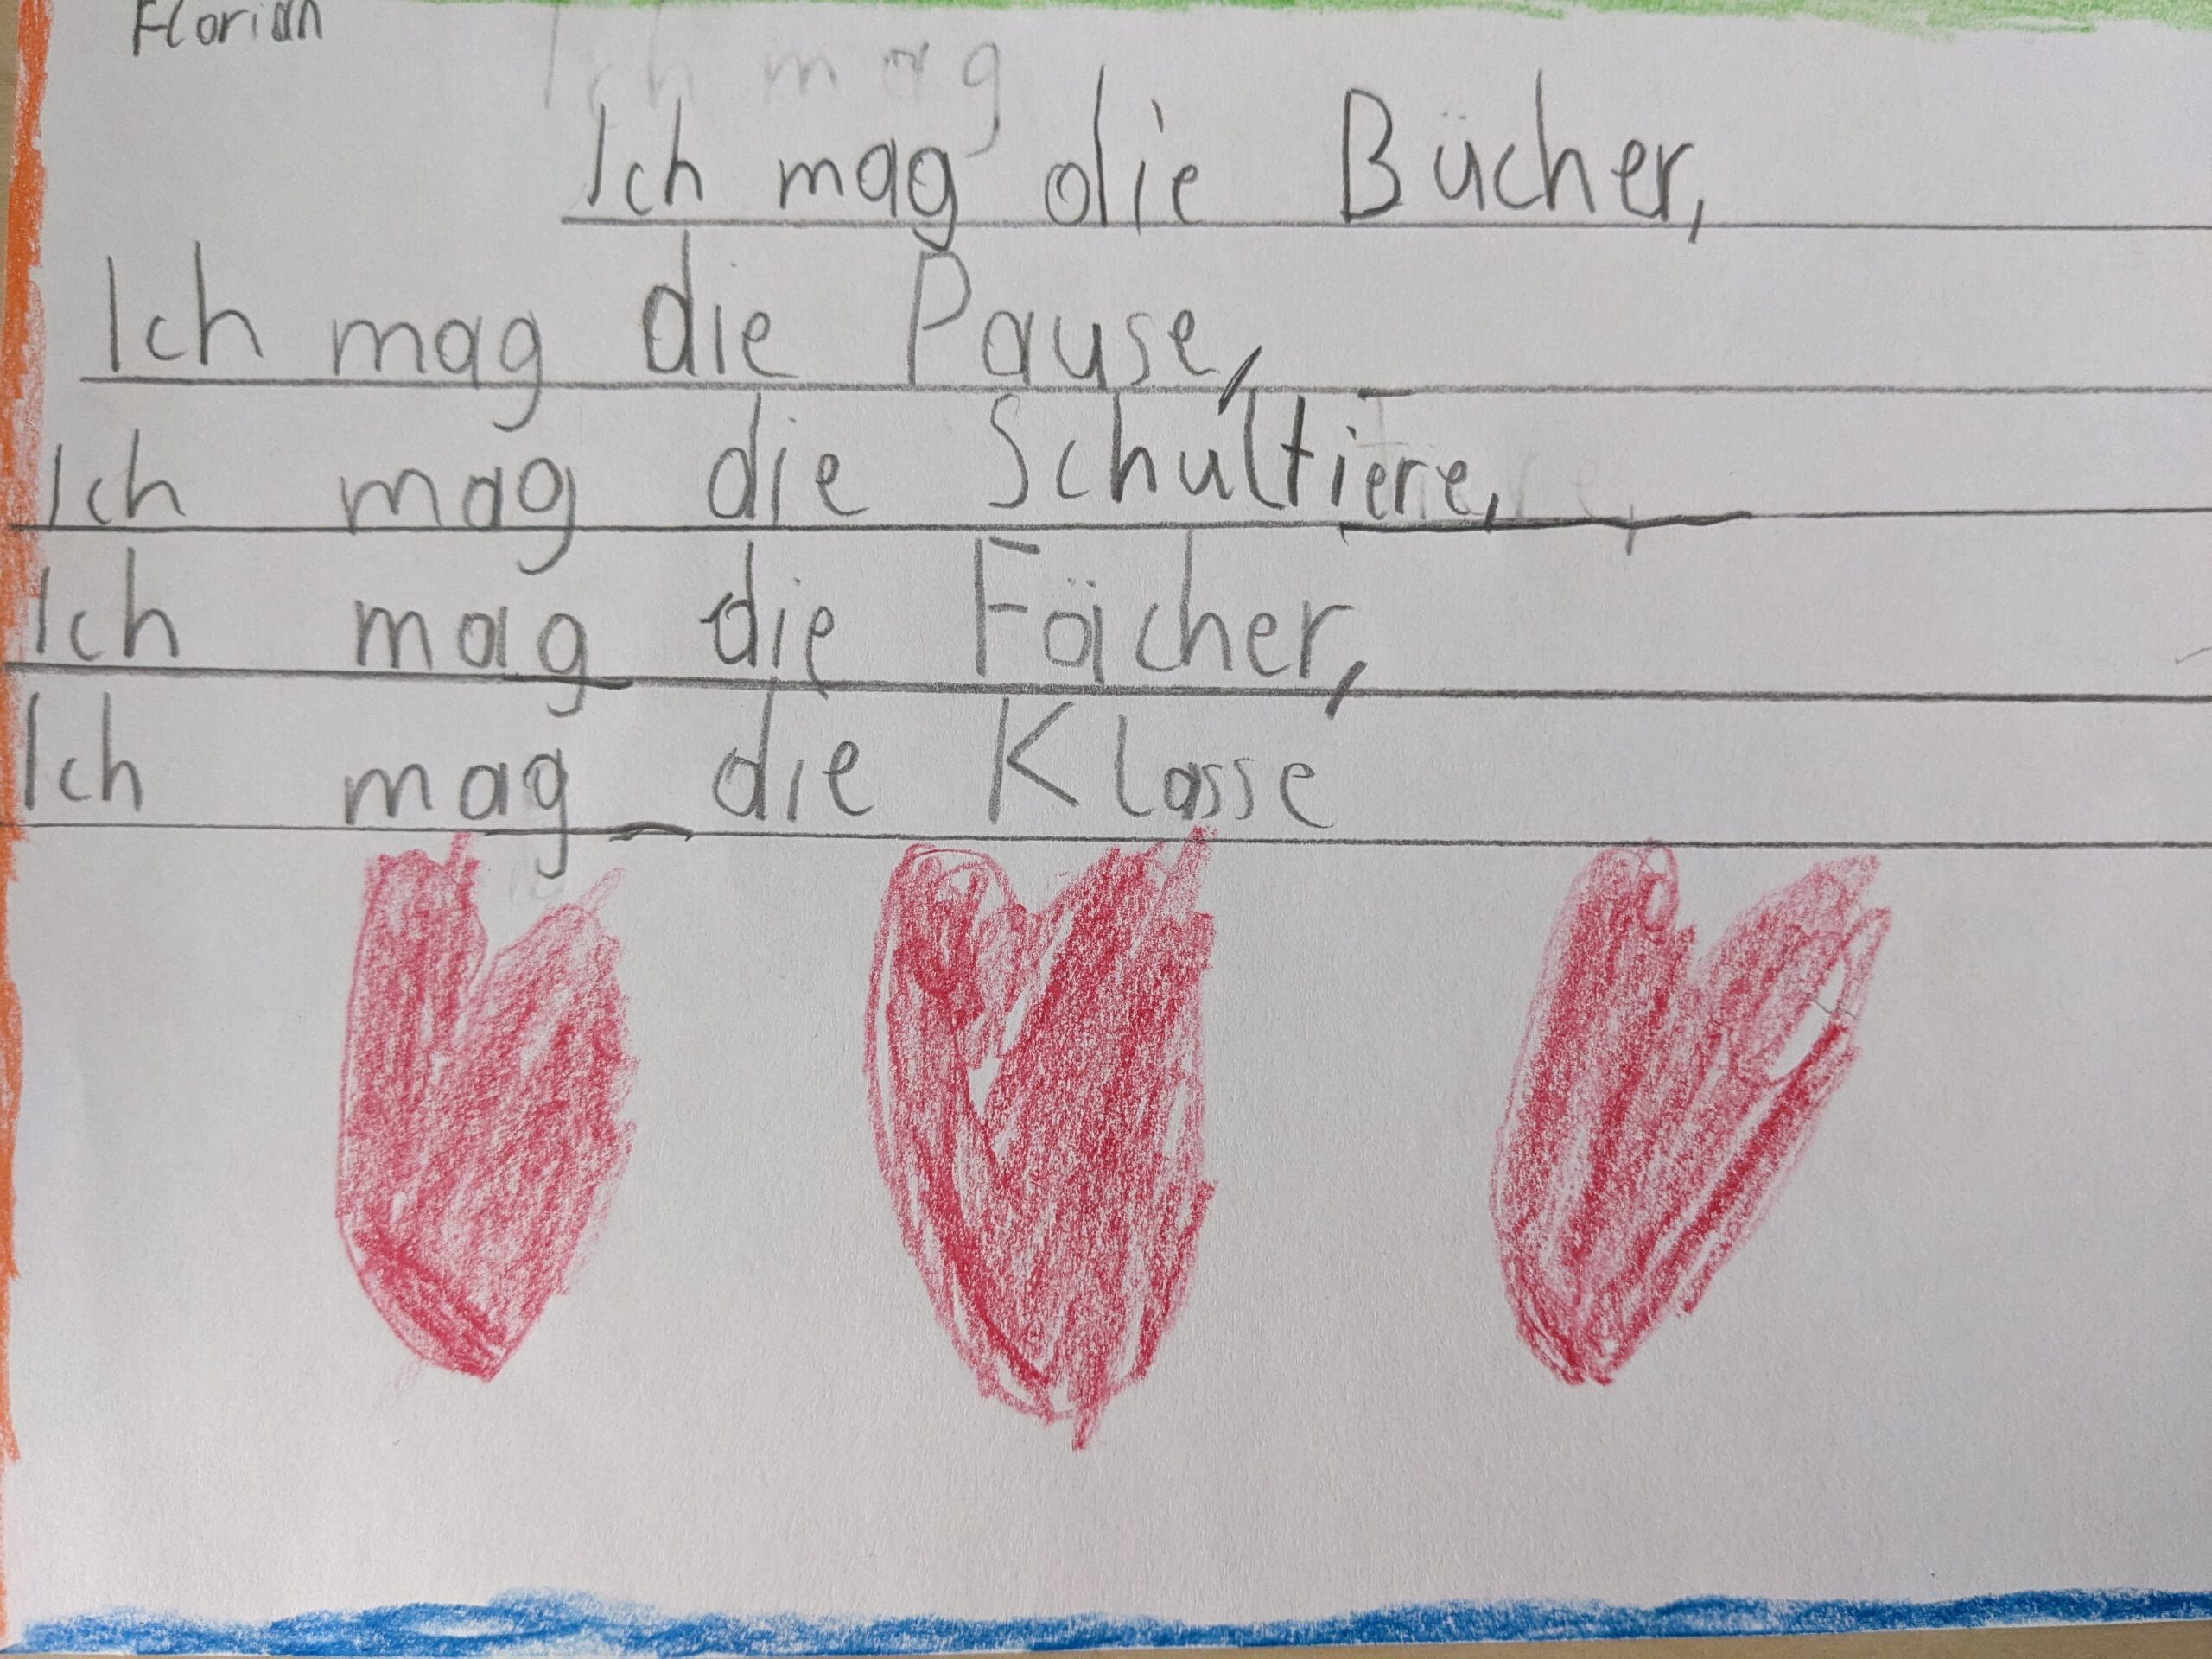 Florian
Ich mag
Ich mag die Bücher,
Ich mag die Pause,
Ich mag die Schultiere,
Ich mag die Fächer,
Ich mag die Klasse